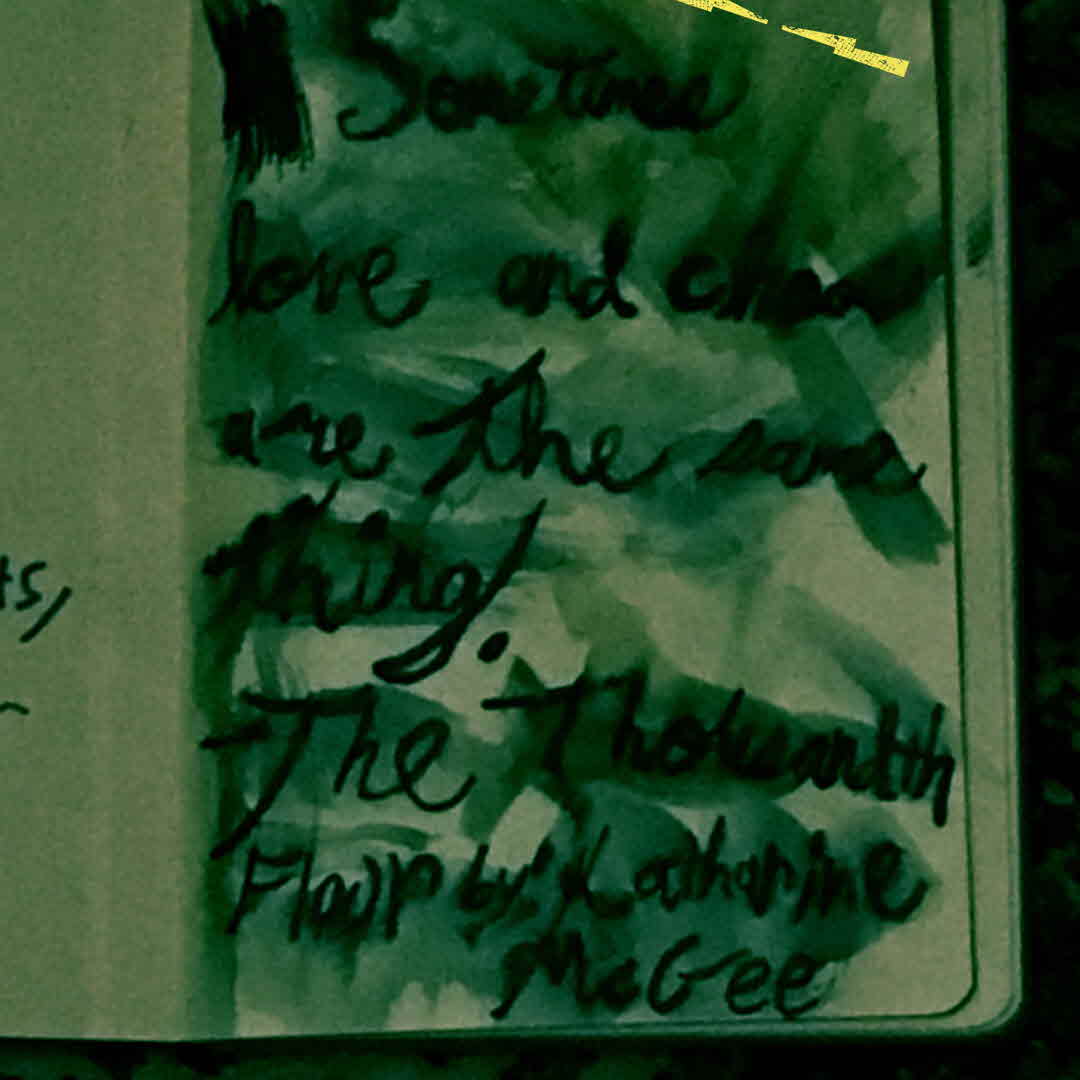 Sometimes
love and chaos
are the same
thing.
-The Thousandth
Floor by Katharine
McGee